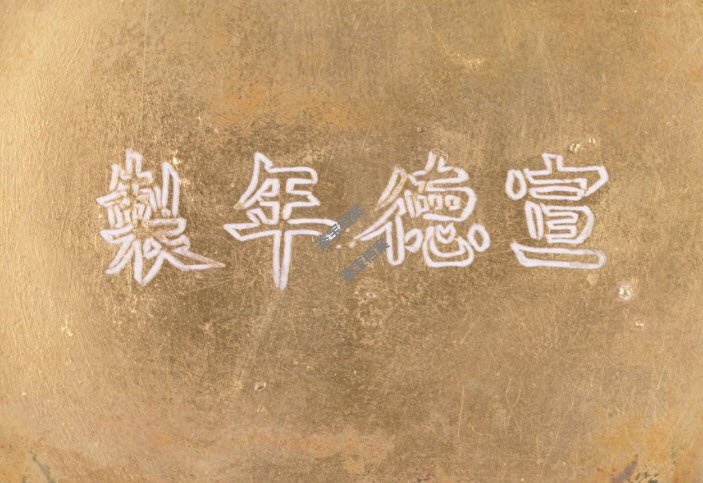 宣德年製